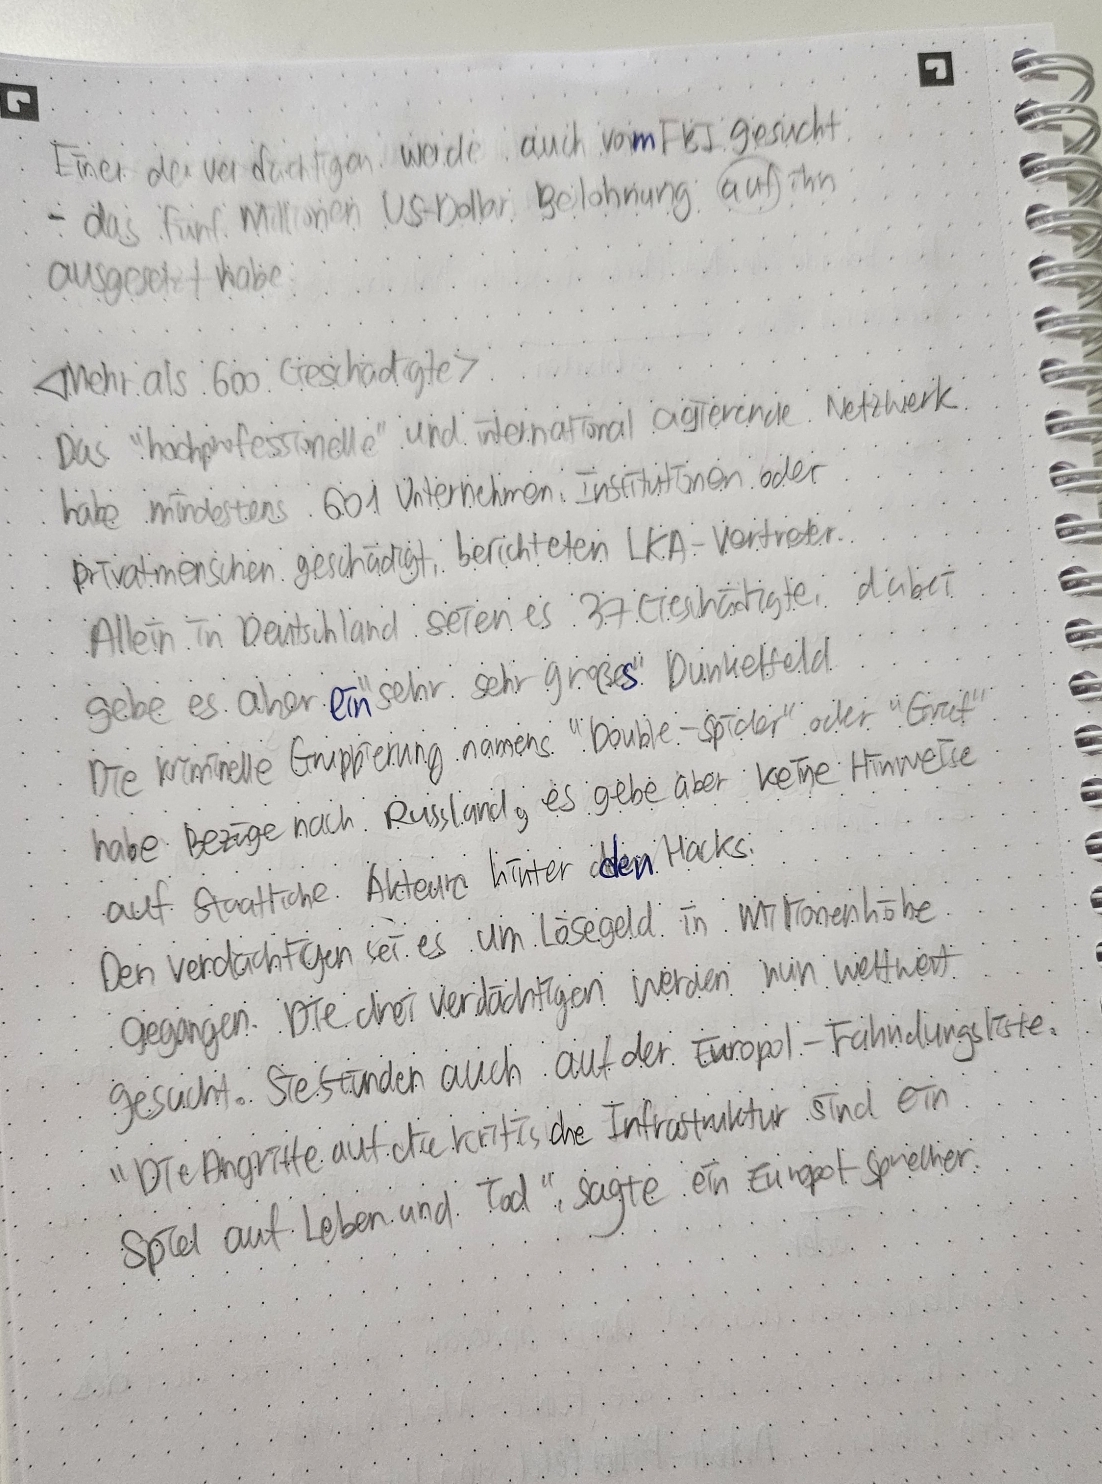 Einer der verdächtigen werde auch vom FBI gesucht
- das fünf Millionen US-Dollar Belohnung auf ihn
ausgesetzt habe.
<Mehr als 600 Geschädigte>
Das "hochprofessionelle" und international agierende Netzwerk
habe mindestens 601 Unternehmen, Institutionen oder
privatmenschen geschädigt, berichteten LKA-Vertreter.
Allein in Deutschland seien es 37 Geschädigte, dabei
gebe es aber ein "sehr sehr großes" Dunkelfeld
Die kriminelle Gruppierung namens "Double-spider" oder "Grief"
habe Bezüge nach Russland, es gebe aber keine Hinweise
auf Staatliche Akteure hinter den Hacks.
Den verdächtigen sei es um Lösegeld in Millionenhöhe
gegangen. Die drei verdächtigen werden nun weltweit
gesucht. Sie stünden auch auf der Europol-Fahndungsliste.
"Die Angriffe auf die kritische Infrastruktur sind ein
Spiel auf Leben und Tod", sagte ein Europol-Sprecher.